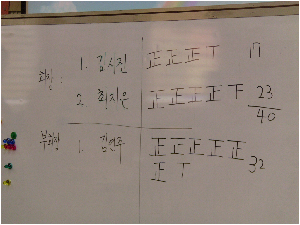 회장 : 1. 김서진 正正正丅 17
2. 최지은 正正正正下 23
40
부회장 1. 김연주 正正正正正
正丅 32